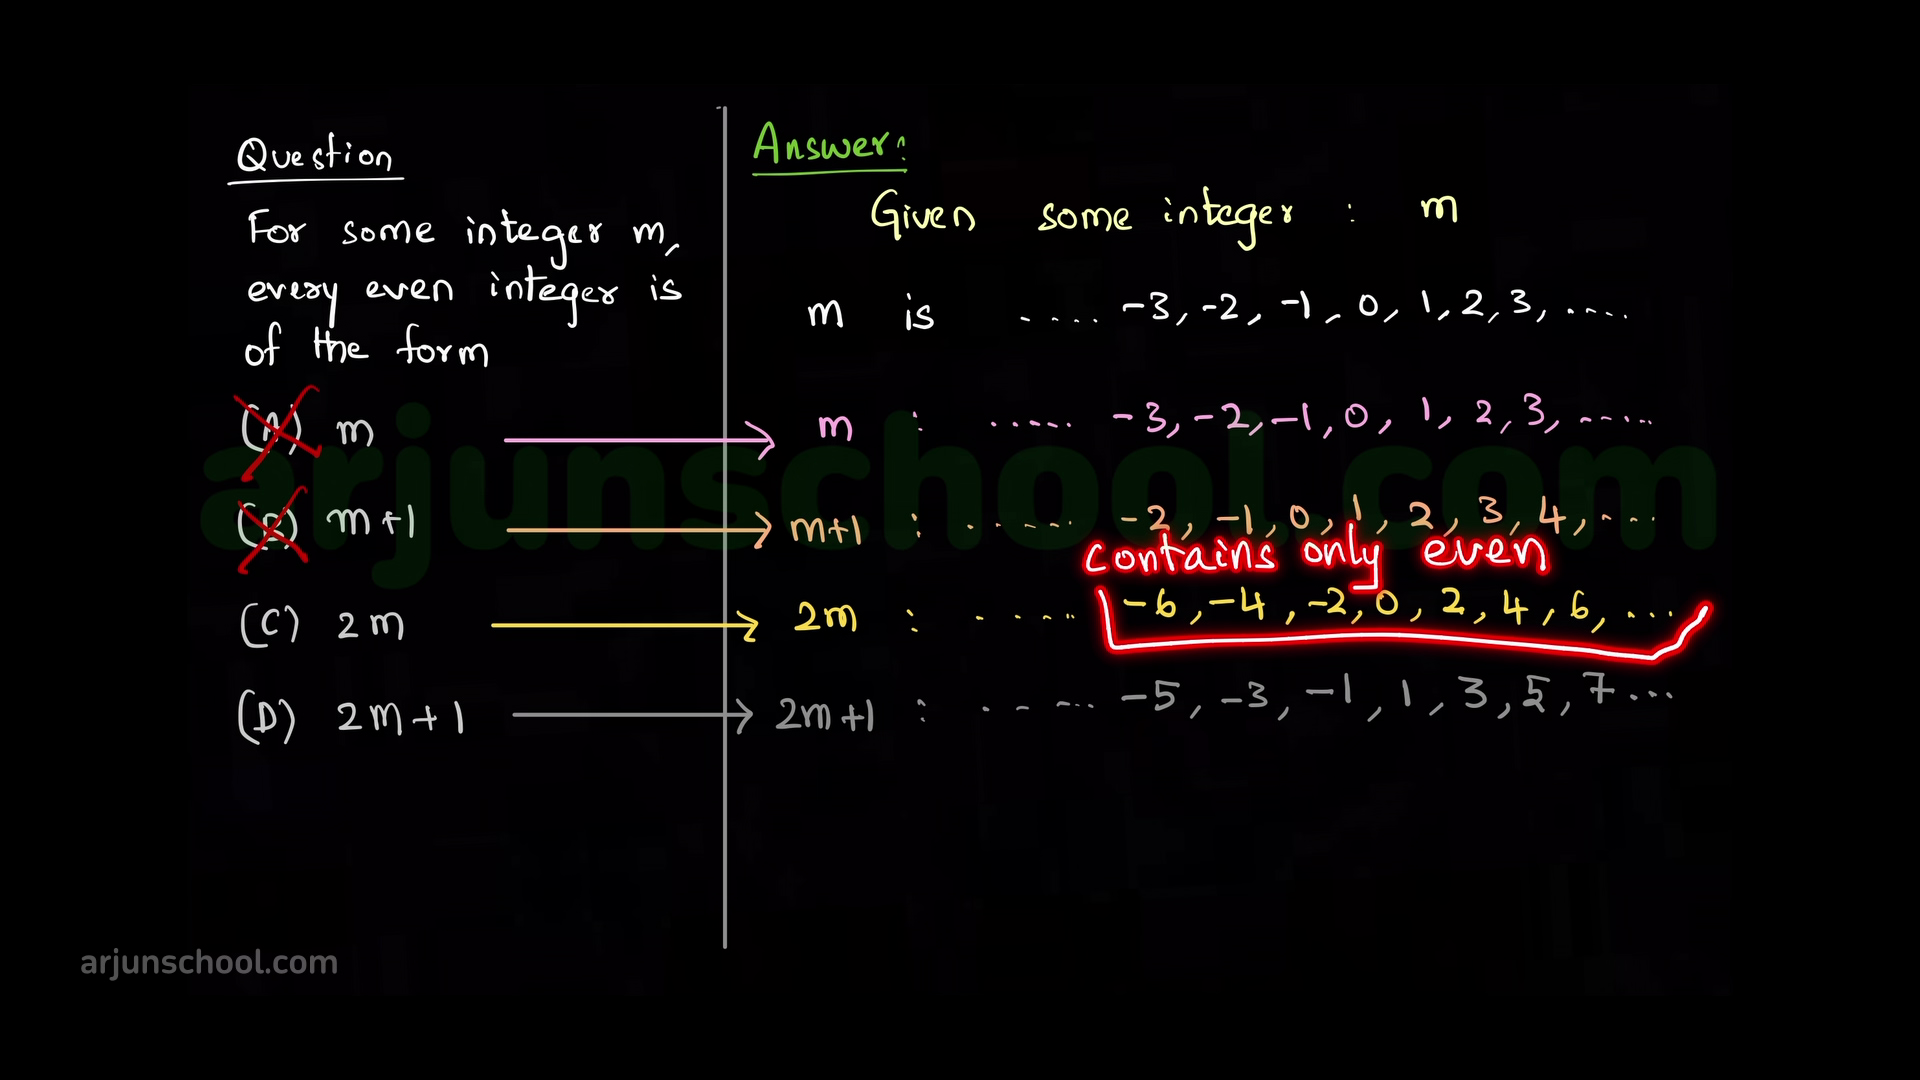 Question
For some integer m,
every even integer is
of the form
(A) m
(B) m+1
(C) 2m
(D) 2m+1
Answer:
Given some integer : m
m is .... -3, -2, -1, 0, 1, 2, 3, ....
m : ..... -3, -2, -1, 0, 1, 2, 3, .....
m+1 : ..... -2, -1, 0, 1, 2, 3, 4, ...
contains only even
2m : ..... -6, -4, -2, 0, 2, 4, 6, ...
2m+1 : ..... -5, -3, -1, 1, 3, 5, 7 ...
arjunschool.com
arjunschool.com